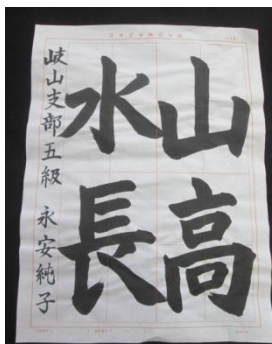 山高
水長
岐山支部五級 永安純子